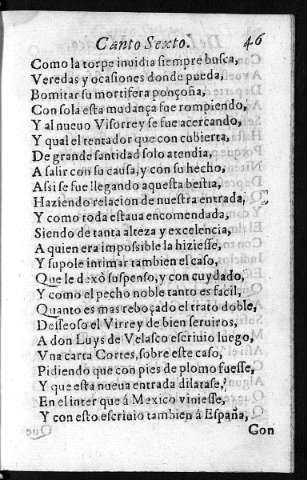 Canto Sexto. 46
Como la torpe inuidia siempre busca,
Veredas y ocasiones donde pueda,
Bomitar su mortifera ponçoña,
Con sola esta mudança fue rompiendo,
Y al nueuo Visorrey se fue acercando,
Y qual el tentador que con cubierta,
De grande santidad solo atendia,
A salir con su causa, y con su hecho,
Assi se fue llegando aquesta bestia,
Haziendo relacion de nuestra entrada,
Y como toda estaua encomendada,
Siendo de tanta alteza y excelencia,
A quien era impossible la hiziesse,
Y supole intimar tambien el caso,
Que le dexò suspenso, y con cuydado,
Y como el pecho noble tanto es facil,
Quanto es mas reboçado el trato doble,
Desseoso el Virrey de bien seruiros,
A don Luys de Velasco escriuio luego,
Vna carta Cortes, sobre este caso,
Pidiendo que con pies de plomo fuesse,
Y que esta nueua entrada dilatase,
En el inter que à Mexico viniesse,
Y con esto escriuio tambien à España,
Con